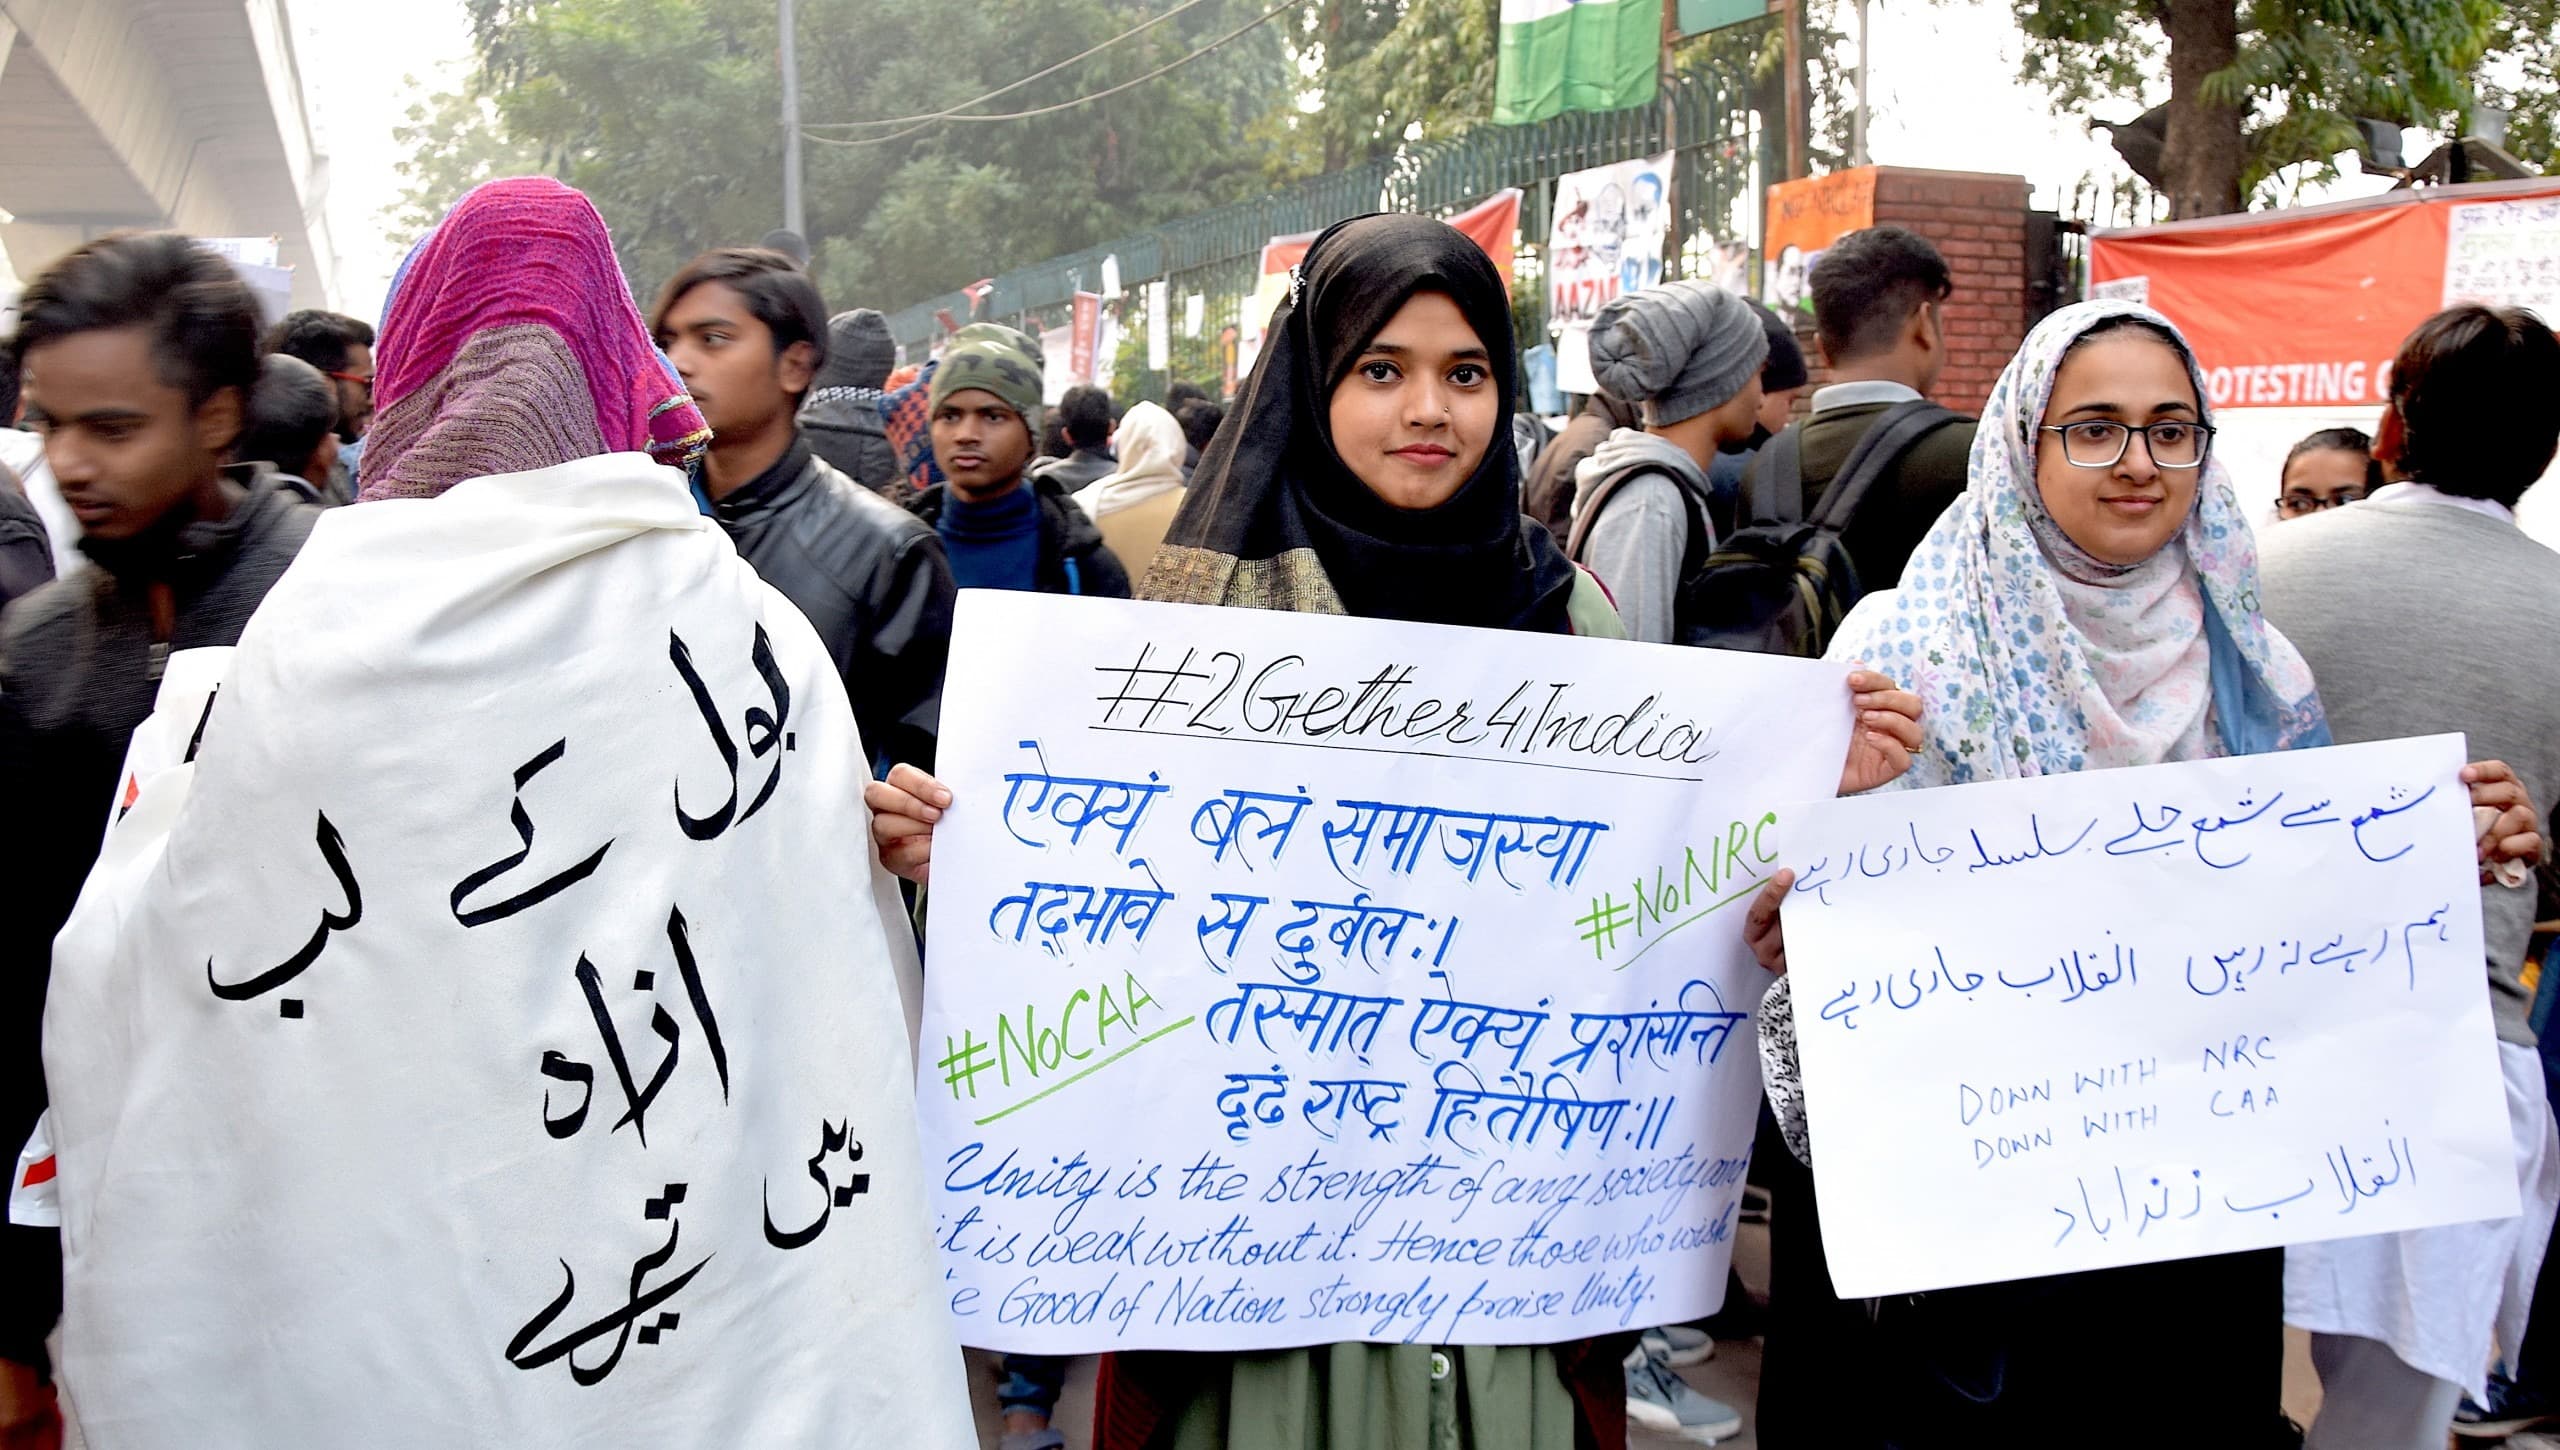 بول
کے
لب
ازاد
ہیں
تیرے
#2Gether4India
ऐक्यं बलं समाजस्या
तद्भावे स दुर्बलः।
#NoNRC
#NoCAA
तस्मात् ऐक्यं प्रशंसन्ति
दृढं राष्ट्र हितैषिणः॥
Unity is the strength of any society and
it is weak without it. Hence those who wish
e Good of Nation strongly praise Unity.
شمع سے شمع جلے سلسلہ جاری رہے
ہم رہے نہ رہیں انقلاب جاری رہے
DOWN WITH NRC
DOWN WITH CAA
انقلاب زنداباد
AAZA
OTESTING